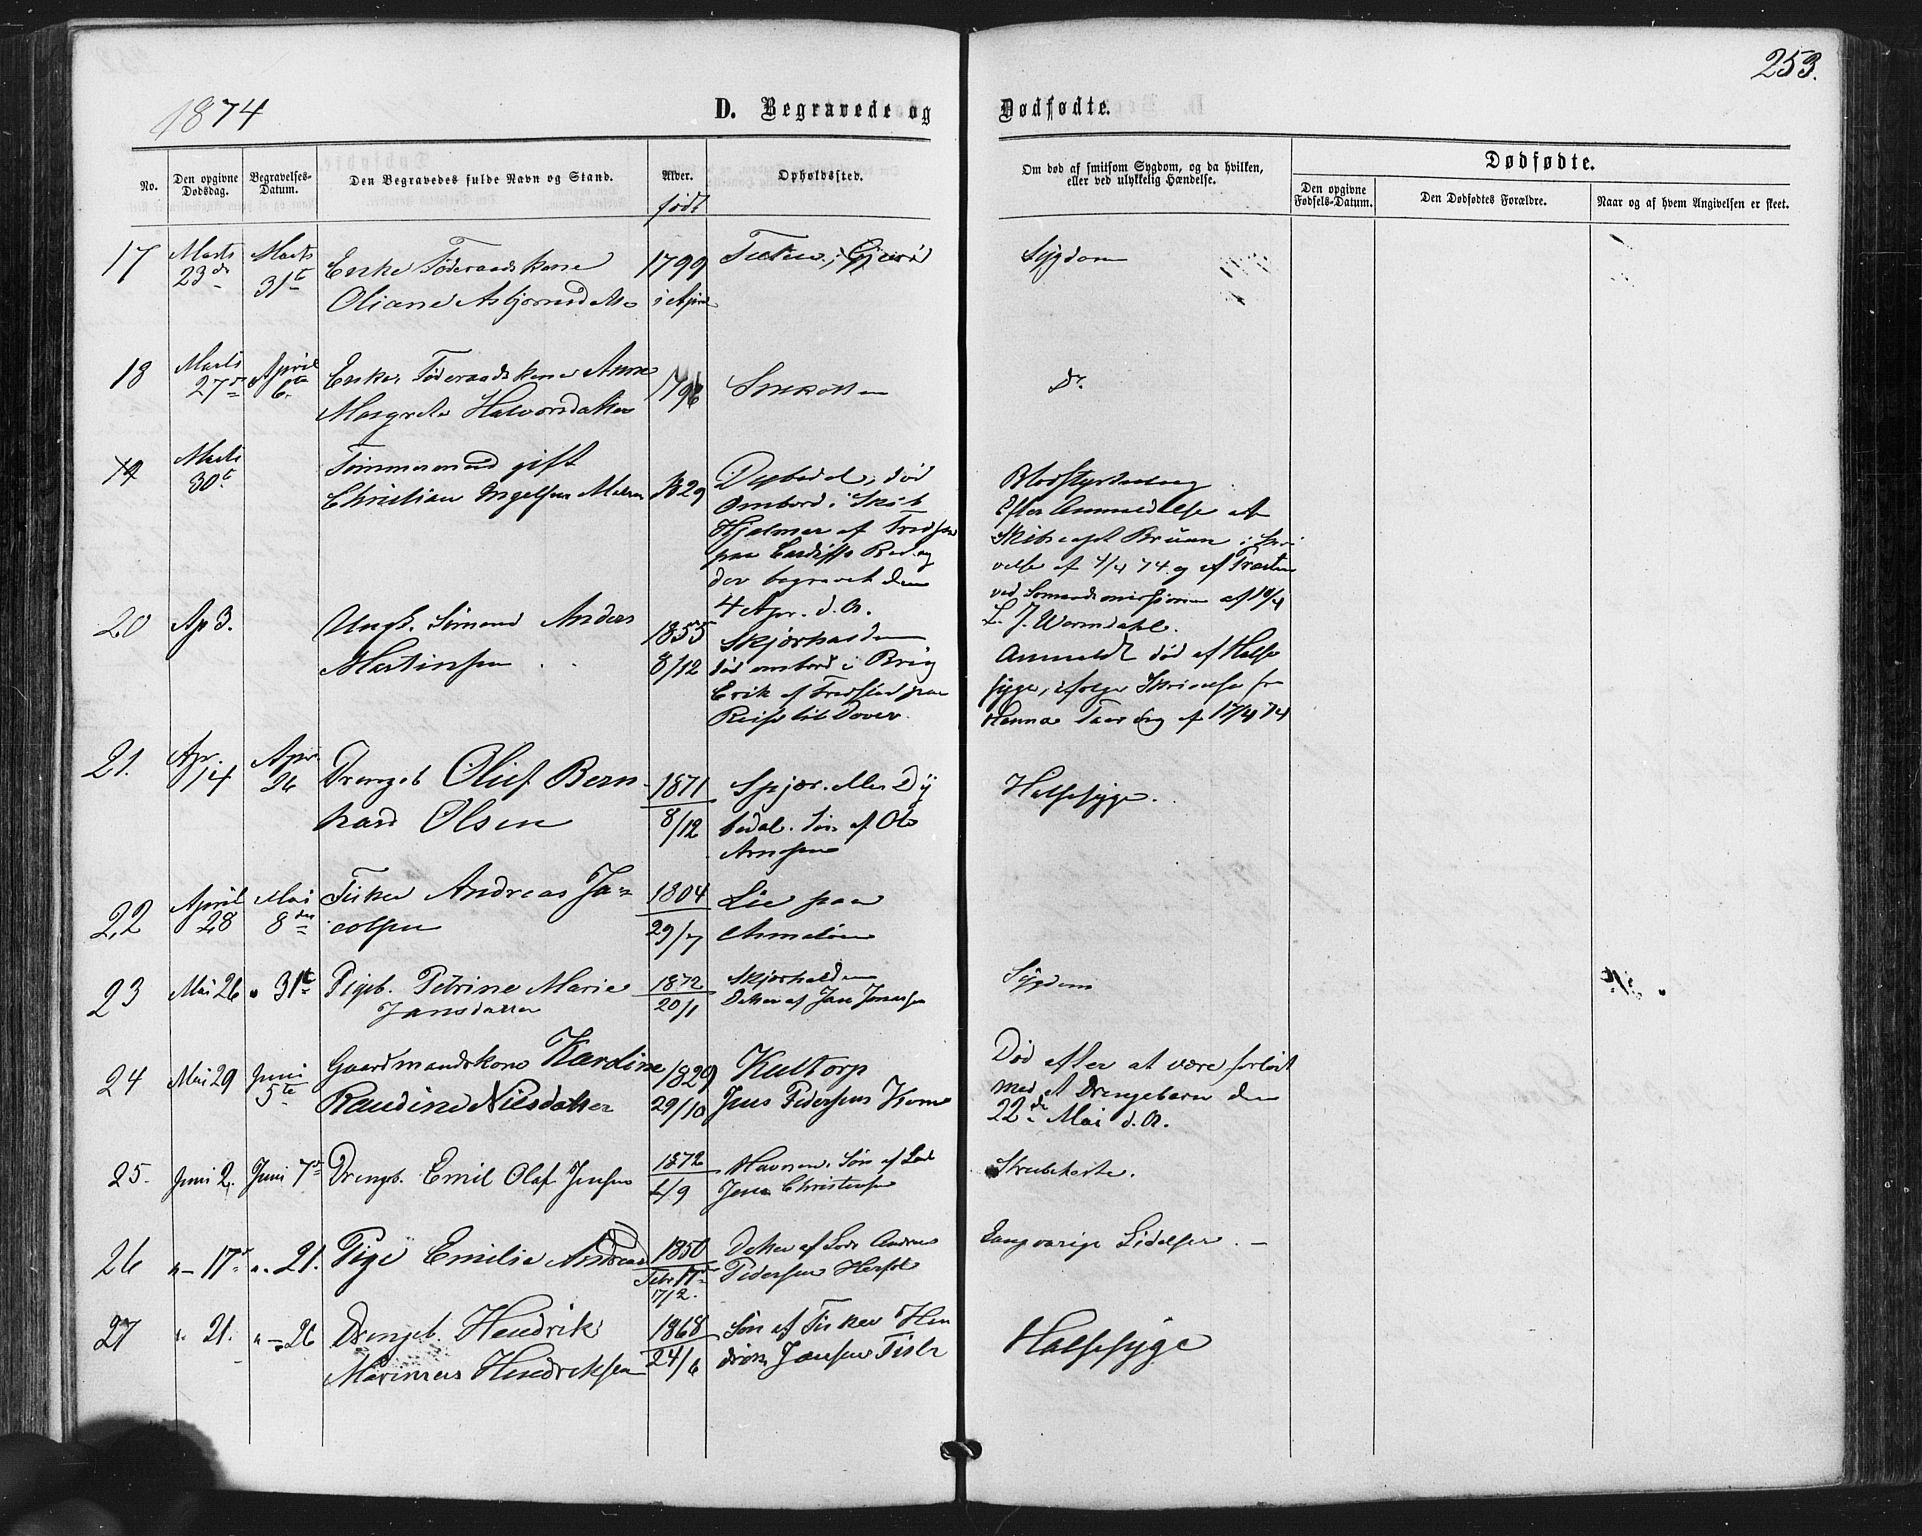 253.
1874
D. Begravede og Dødfødte.
No.
Den opgivne Dødsdag.
Begravelses-Datum.
Den Begravedes fulde Navn og Stand.
Alder.
født
Opholdssted.
Om død af smitsom Sygdom, og da hvilken, eller ved ulykkelig Hændelse.
Dødfødte.
Den opgivne Fødsels-Datum.
Den Dødfødtes Forældre.
Naar og af hvem Angivelsen er skeet.
17 Marts 23de Marts 31te Enke Føderaadskone 1799 Sygdom
Oliane Asbjørnsd i April
18 Marts 27de April 6te Enke Føderaadskone Anne 1796 Do
Margrete Halvorsdatter
19 Marts 30te Tømmermand gift
Christian Ingelsen 1829 død
ombord i Skib
Hjalmar af Fredst
paa Cardiffs Red og
der begravet den
4 Apr. d. A.
Blodstyrtning
Efter Anmeldelse af
Skibscapt Bruun i Skri
velse af 4/4 74 og af Præsten
ved Sømandsmissionen af 10/4
L. J. Wormdahl.
20 Ap 3. Ungk. Simond Anders 1855 Skjærhalden
Martinsen 8/12 død ombord i Brig
Erik af Fredstad paa
Reise til Dover.
Anmeldt død af Halse
syge, ifølge Skrivelse fr
Hanna af 17/4 74
21. Apr. 14 Apr. 26 Drengeb Oluf Bern 1871 Halsesyge.
hard Olsen 8/12 bedal. Søn af Ole
Arnesen
22 April 28 Mai 8de Fisker Andreas Ja= 1804 Lie paa
cobsen 29/7 Asmaløen
23 Mai 26 " 31te Pigeb. Petrine Marie 1872 Skjærhalden Sygdom
Jansdatter 20/1 Datter af Jan Jensen
24 Mai 29 Juni 5te Gaardmandskone Kardine 1829 Kultorp
Raudine Nilsdatter 29/10 Jens Pedersens Kone
Død efter at være forløst
med et Drengebarn den
22de Mai d. A.
25. Juni 2. Juni 7de Drengeb. Emil Olaf Jensen 1872 Havnen. Søn af Lods Strubehoste.
4/9 Jens Christensen
26 " 17de " 21. Pige Emilie Andreas D 1850 Datter af Lods Andreas Langvarige Lidelser.
Febr 17de Pedersen
17/2.
27 " 21. " 26 Drengeb. Hendrik 1868 Søn af Fisker Hen Halsesyge
Marinius Hendriksen 24/6 drik Jansen